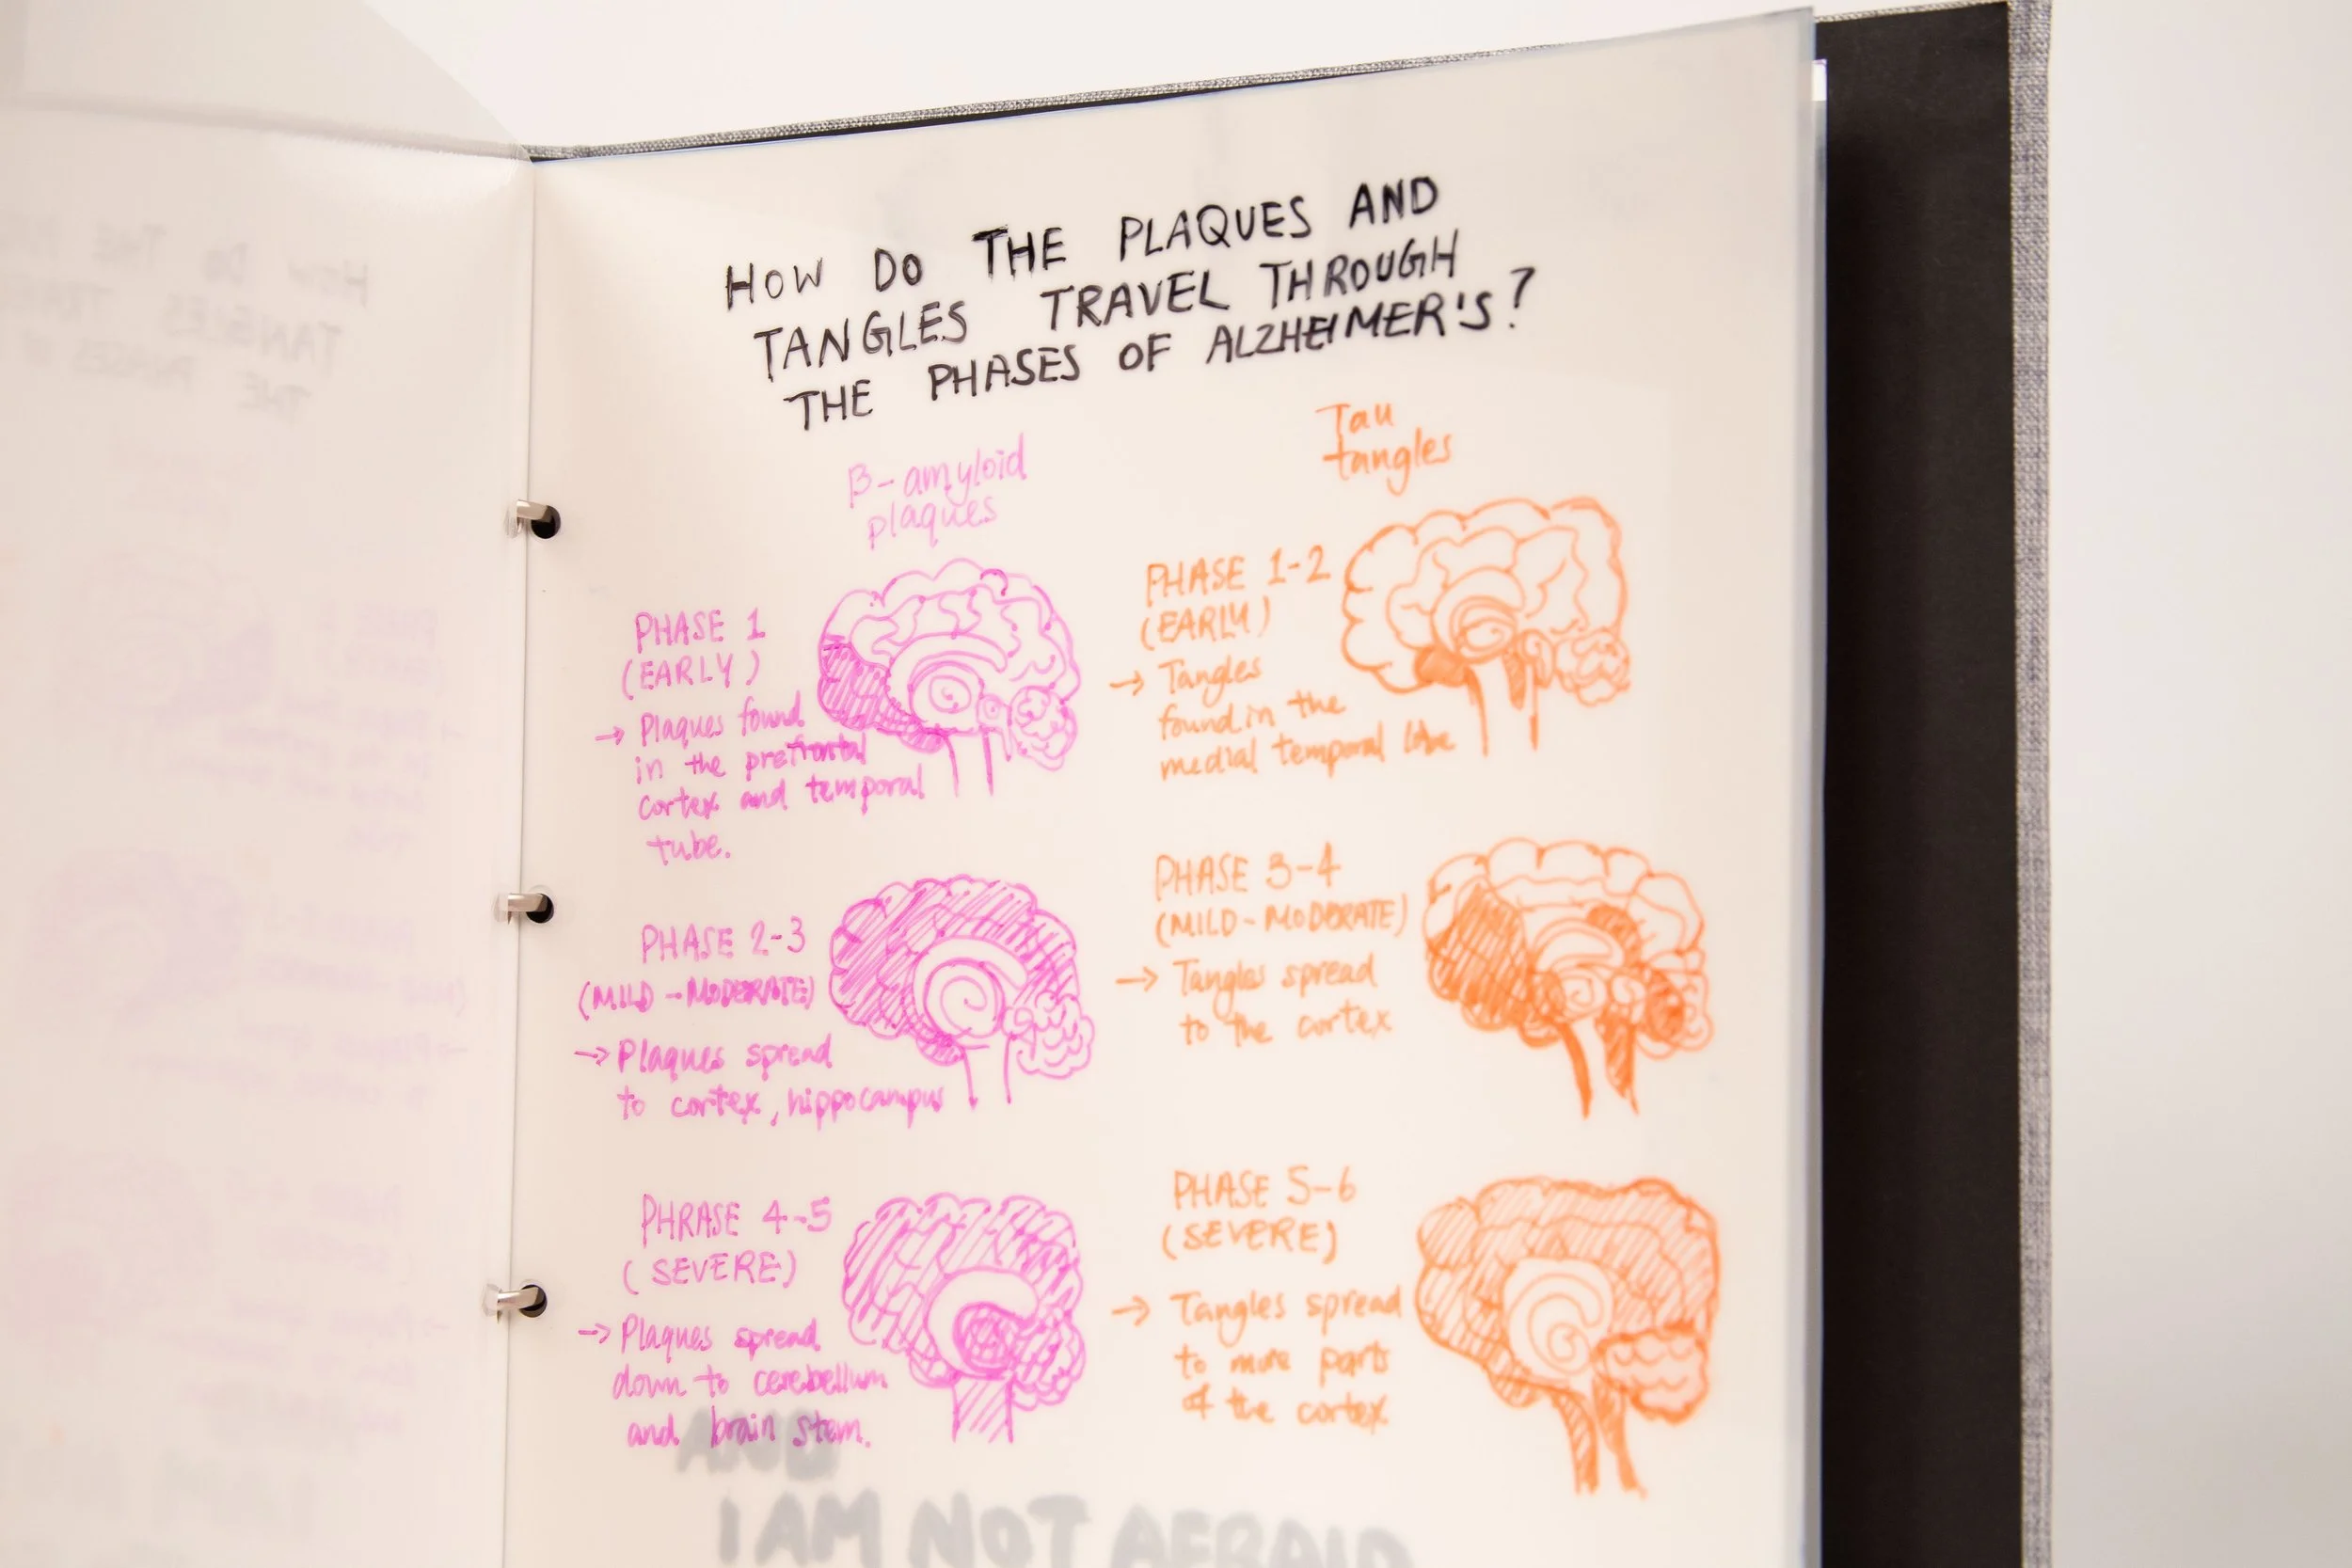 HOW DO THE PLAQUES AND
TANGLES TRAVEL THROUGH
THE PHASES OF ALZHEIMER'S?
β-amyloid
plaques
PHASE 1
(EARLY)
→ Plaques found
in the prefrontal
cortex and temporal
tube.
PHASE 2-3
(MILD-MODERATE)
→ Plaques spread
to cortex, hippocampus
PHRASE 4-5
(SEVERE)
→ Plaques spread
down to cerebellum
and brain stem.
Tau
tangles
PHASE 1-2
(EARLY)
→ Tangles
found in the
medial temporal lobe
PHASE 3-4
(MILD-MODERATE)
→ Tangles spread
to the cortex
PHASE 5-6
(SEVERE)
→ Tangles spread
to more parts
of the cortex
AND
I AM NOT AFRAID